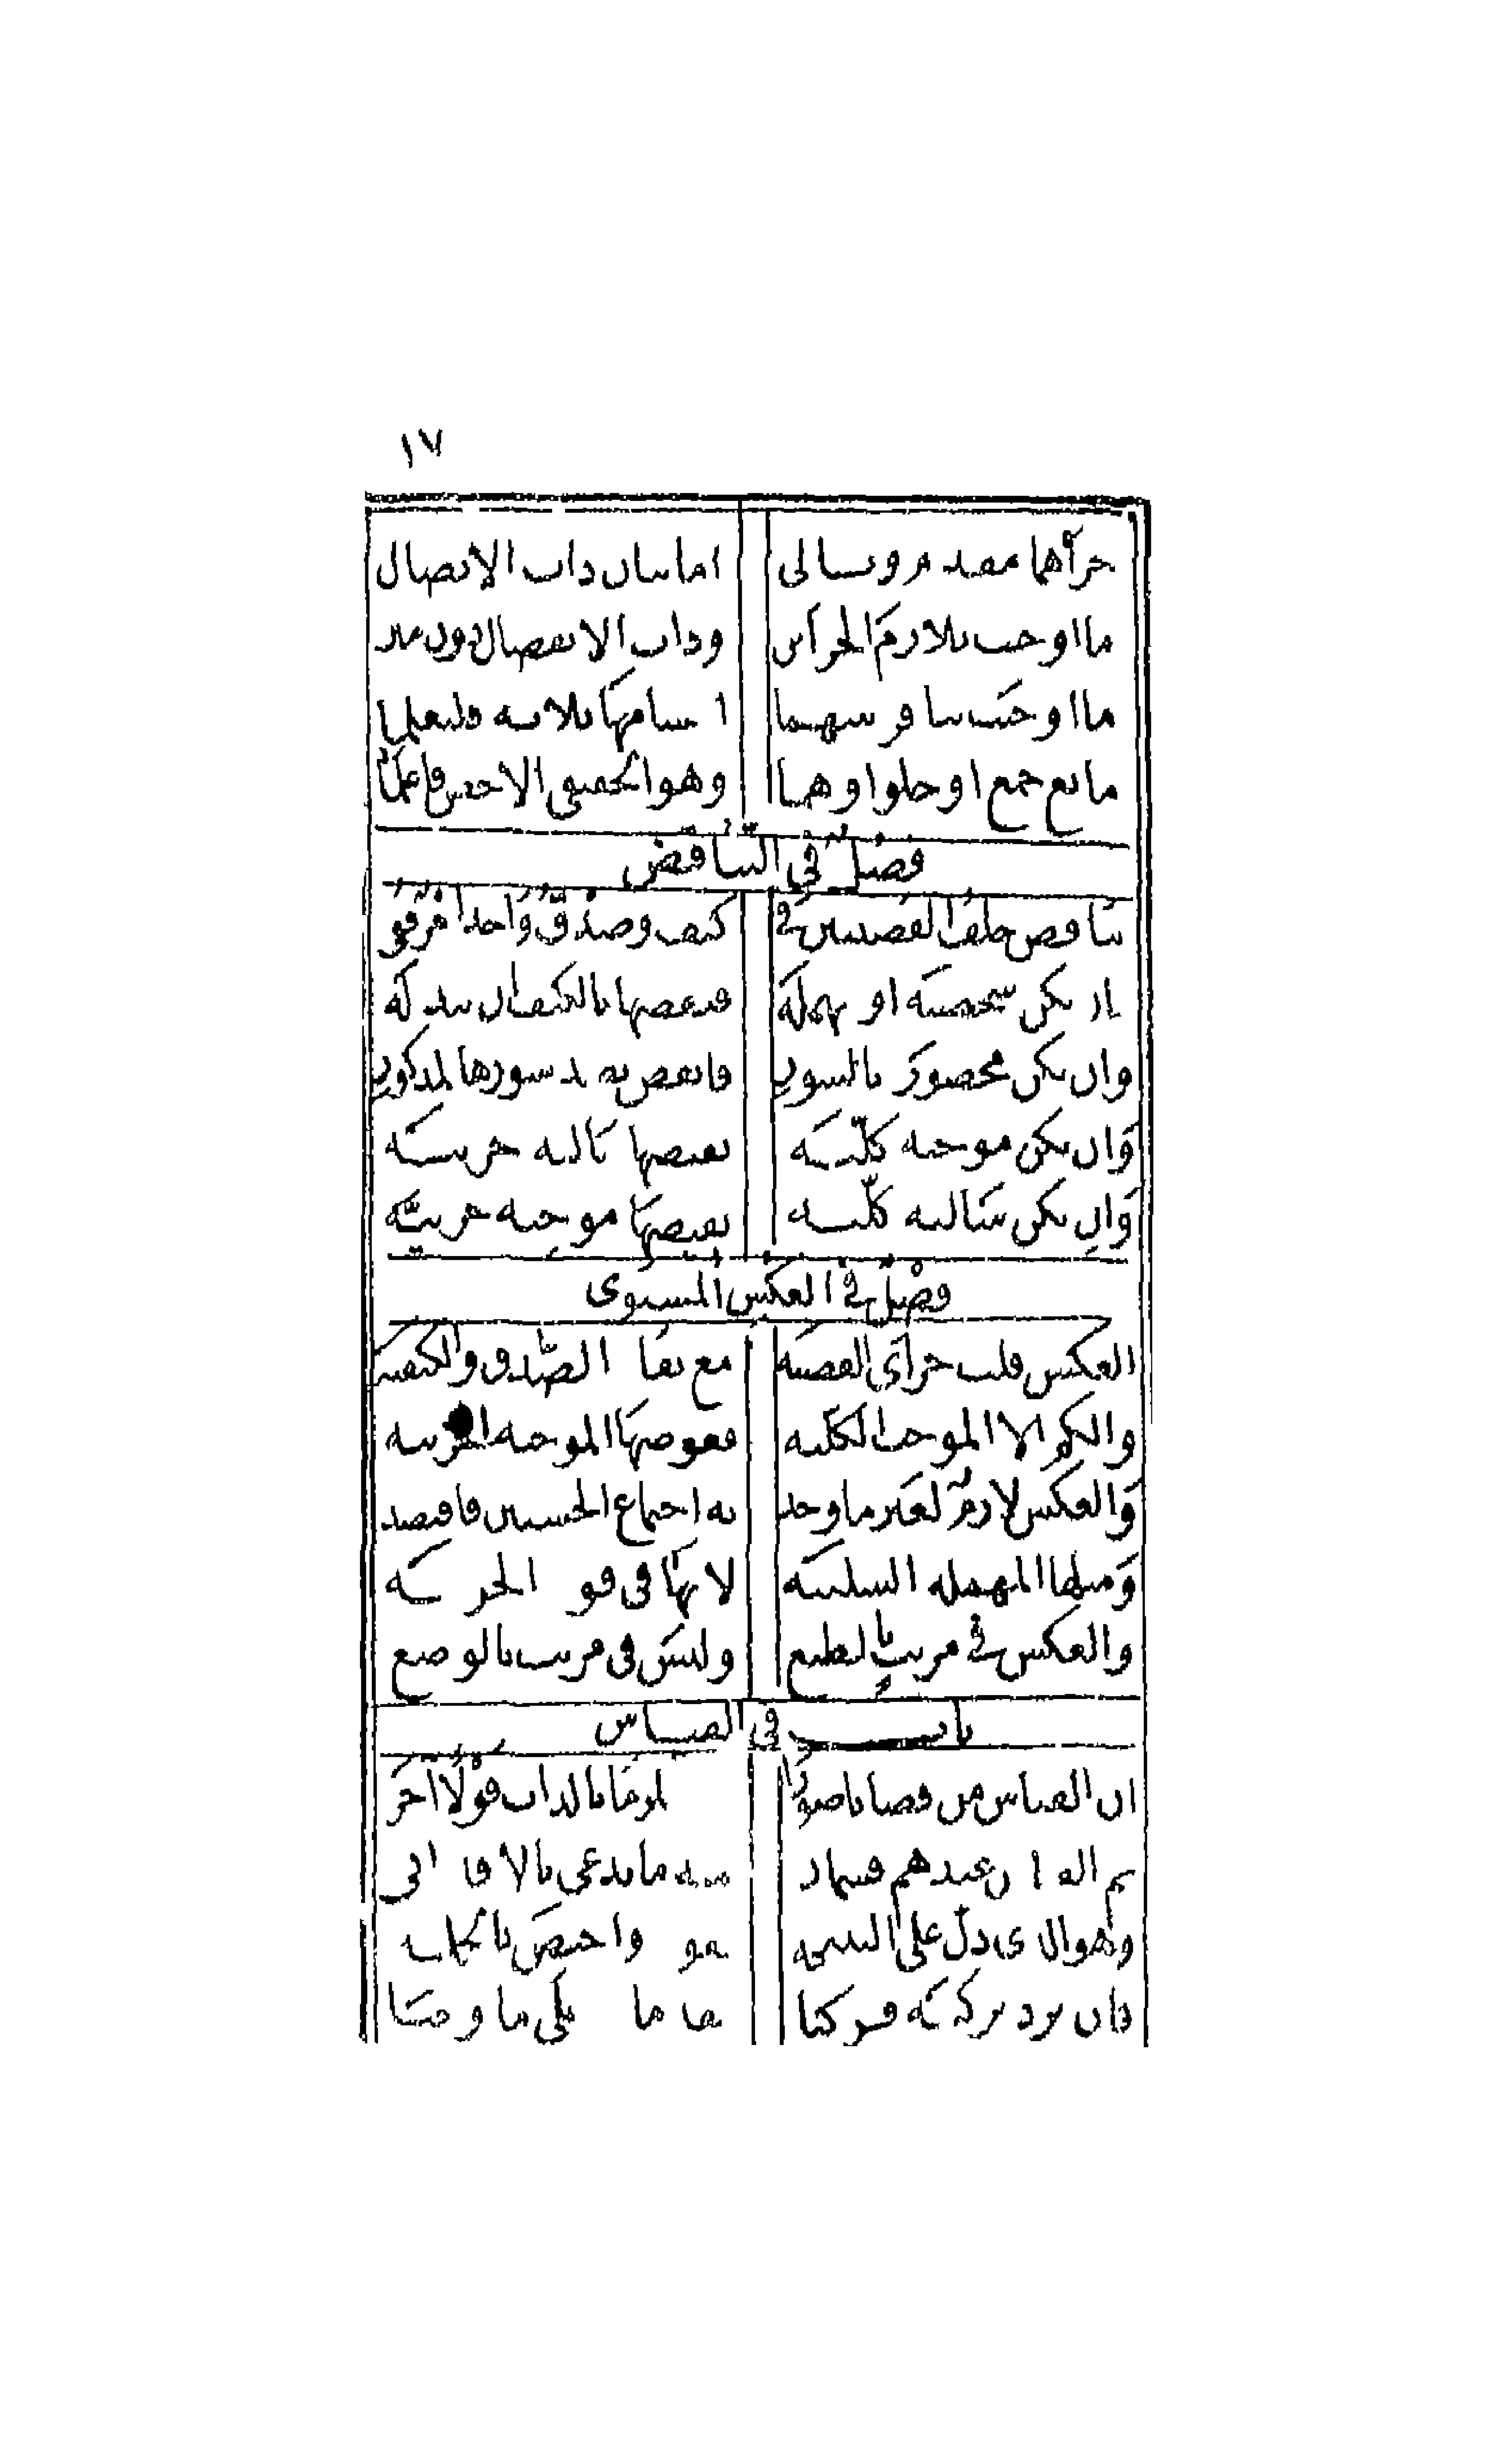 ١٧
جزآهما مقدم وتالي اما بيان ذات الاتصال
ما اوجبت تلازم الجزأين وذات الانفصال دون مين
ما اوجبت تنافر بينهما اقسامها ثلاثة فلتعلما
مانع جمع او خلو او هما وهو الحقيقي الاخص فاعلما
فصل في التناقض
تناقض خلف القضيتين في كيف وصدق واحد امر قفي
فان تكن شخصية او مهمله فنقضها بالكيف ان تبدله
وان تكن محصورة بالسور فانقض بضد سورها المذكور
وان تكن موجبة كلية نقيضها سالبة جزئية
وان تكن سالبة كلية نقيضها موجبة جزئية
فصل في العكس المستوي
العكس قلب جزأي القضية مع بقا الصدق والكيفية
والكم الا الموجب الكلية فعوضها الموجبة الجزئية
والعكس لازم لغير ما وجد به اجتماع الخستين فاقتصد
ومثلها المهملة السلبية لانها في قوة الجزئية
والعكس في مرتب بالطبع وليس في مرتب بالوضع
باب في القياس
ان القياس من قضايا صورا مستلزما بالذات قولا آخر
ثم القياس عندهم قسمان فمنه ما يدعى بالاقتراني
وهو الذي دل على النتيجة بقوة واختص بالحملية
فان ترد تركيبه فركبا مقدماته على ما وجبا